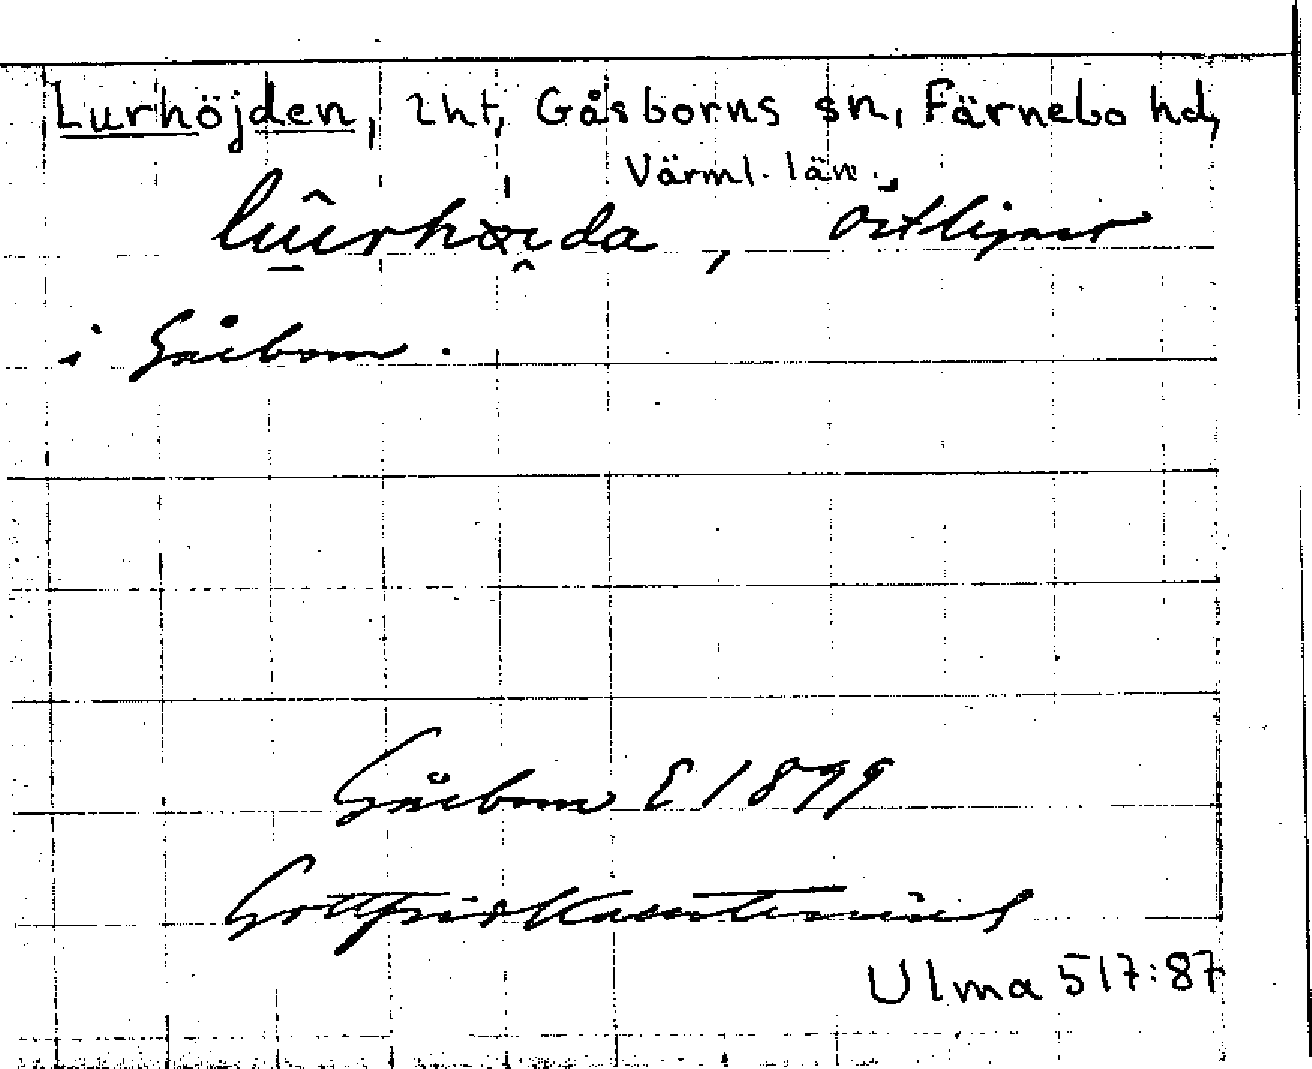 Lurhöjden, lht, Gåsborns sn, Färnebo hd,
Värml. län.
, östligast
i Gåsborn.
Gåsborn E 1899
Gottfrid Kallstenius
Ulma 517:87